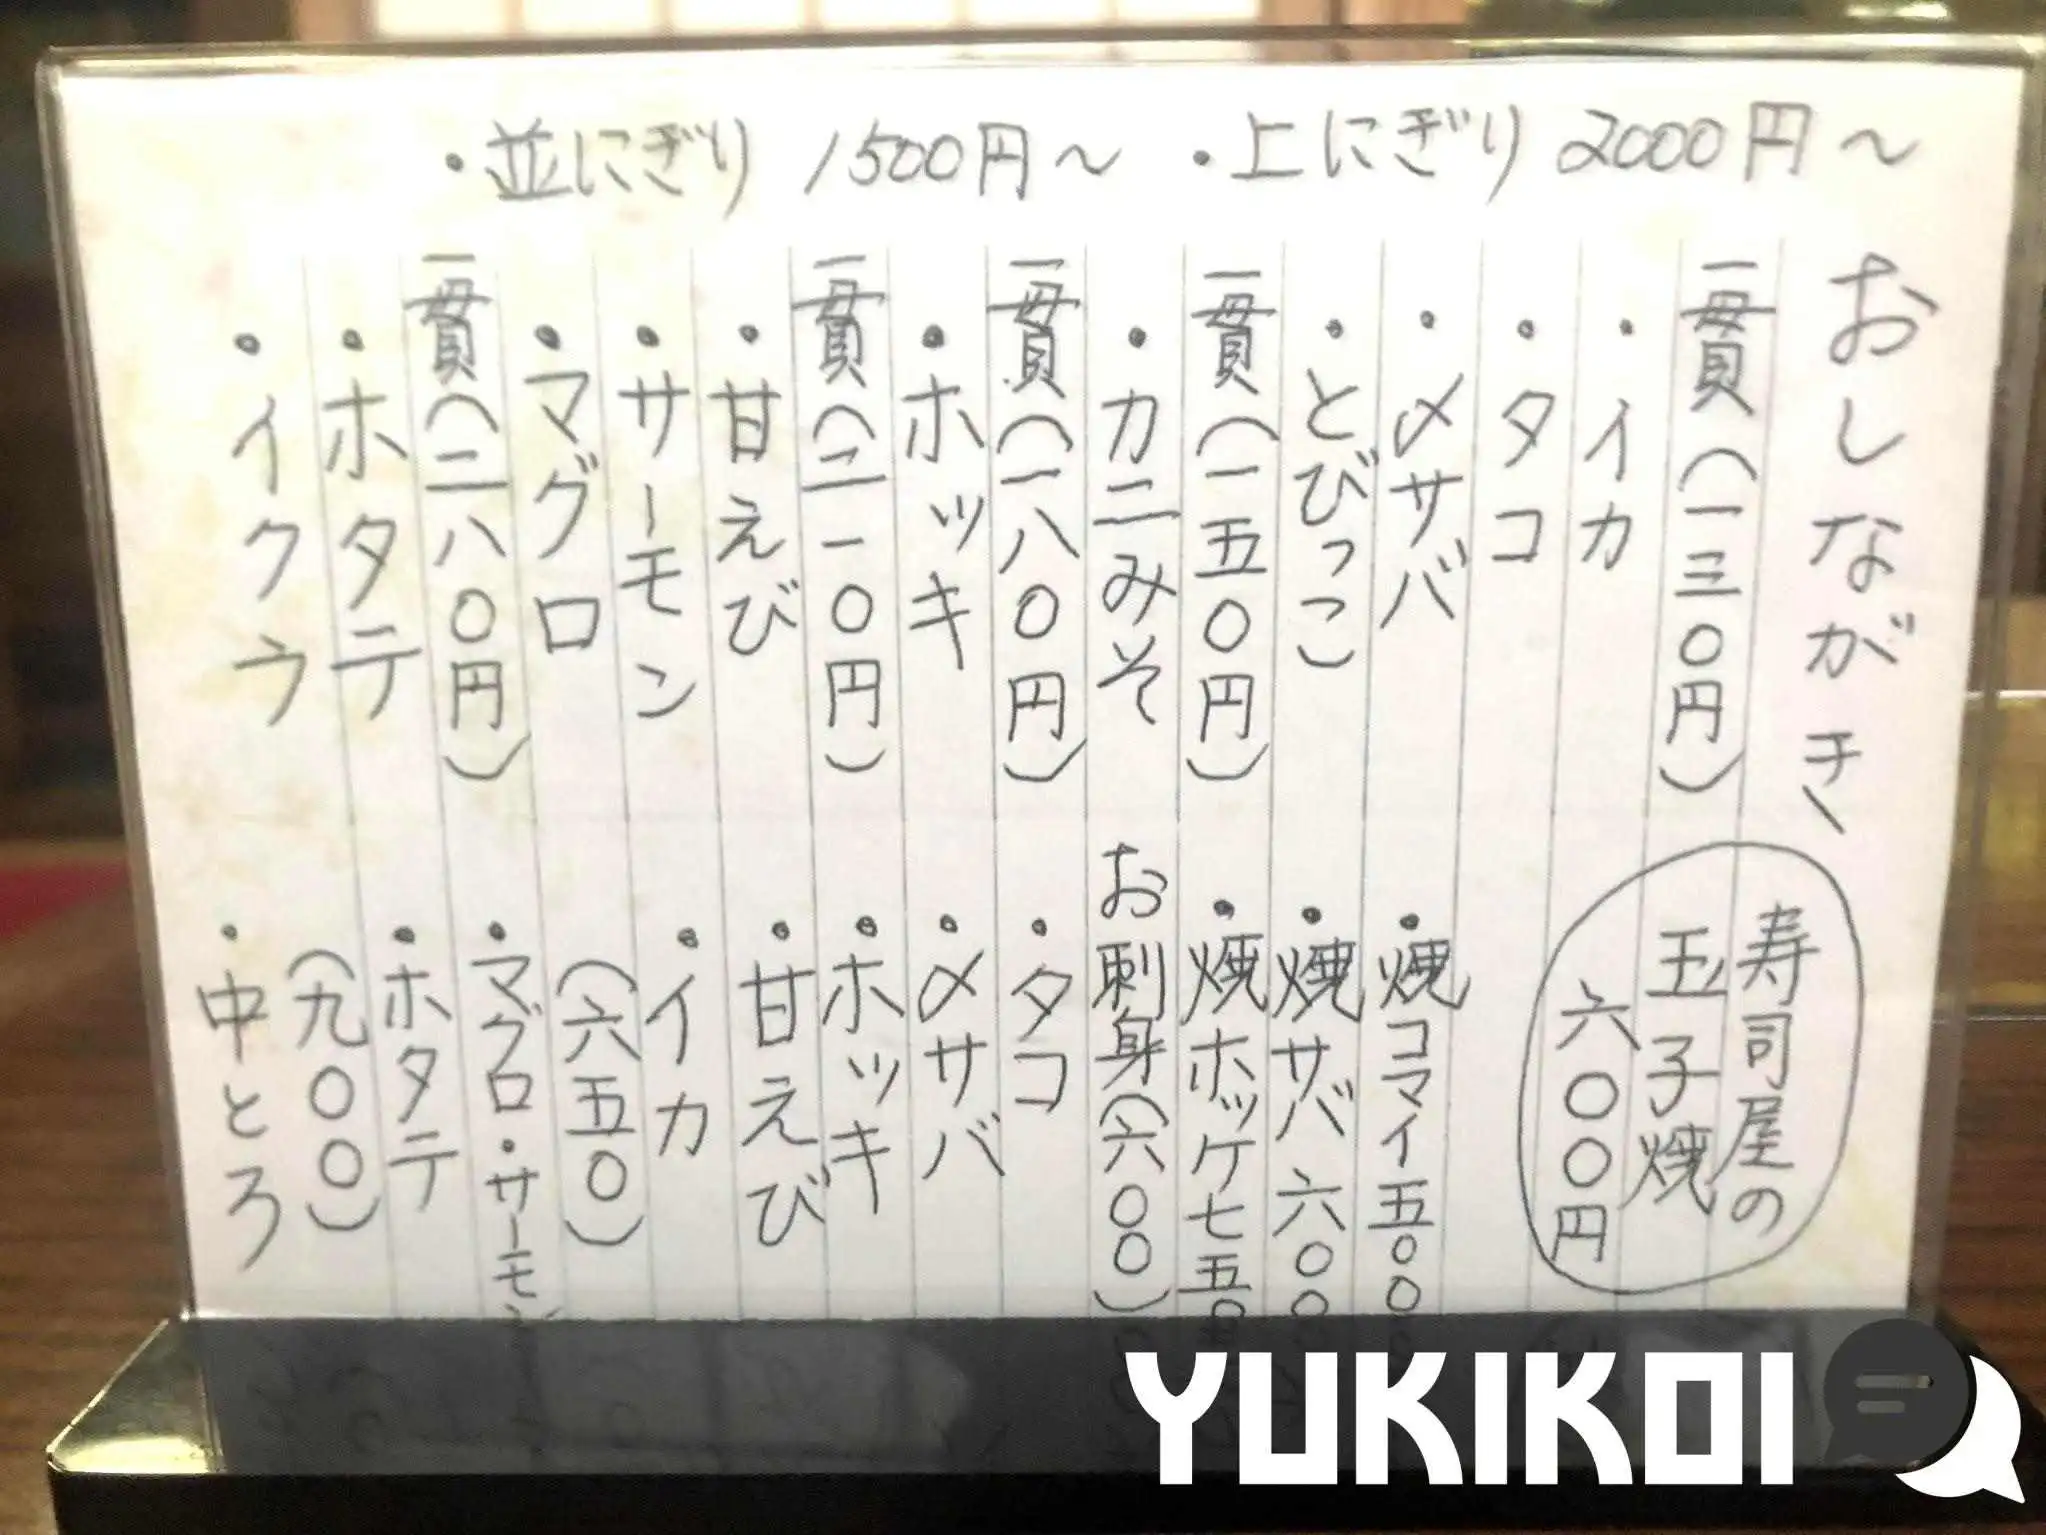 ・並にぎり 1500円〜 ・上にぎり 2000円〜
おしながき
一貫(一三〇円)
・イカ
・タコ
・〆サバ
・とびっこ
一貫(一五〇円)
・カニみそ
一貫(一八〇円)
・ホッキ
一貫(二一〇円)
・甘えび
・サーモン
・マグロ
一貫(二八〇円)
・ホタテ
・イクラ
寿司屋の
玉子焼
六〇〇円
・焼コマイ五〇〇
・焼サバ六〇〇
・焼ホッケ七五〇
お刺身(六〇〇)
・タコ
・〆サバ
・ホッキ
・甘えび
・イカ
(六五〇)
・マグロ・サーモン
・ホタテ
(九〇〇)
・中とろ
YUKIKOI